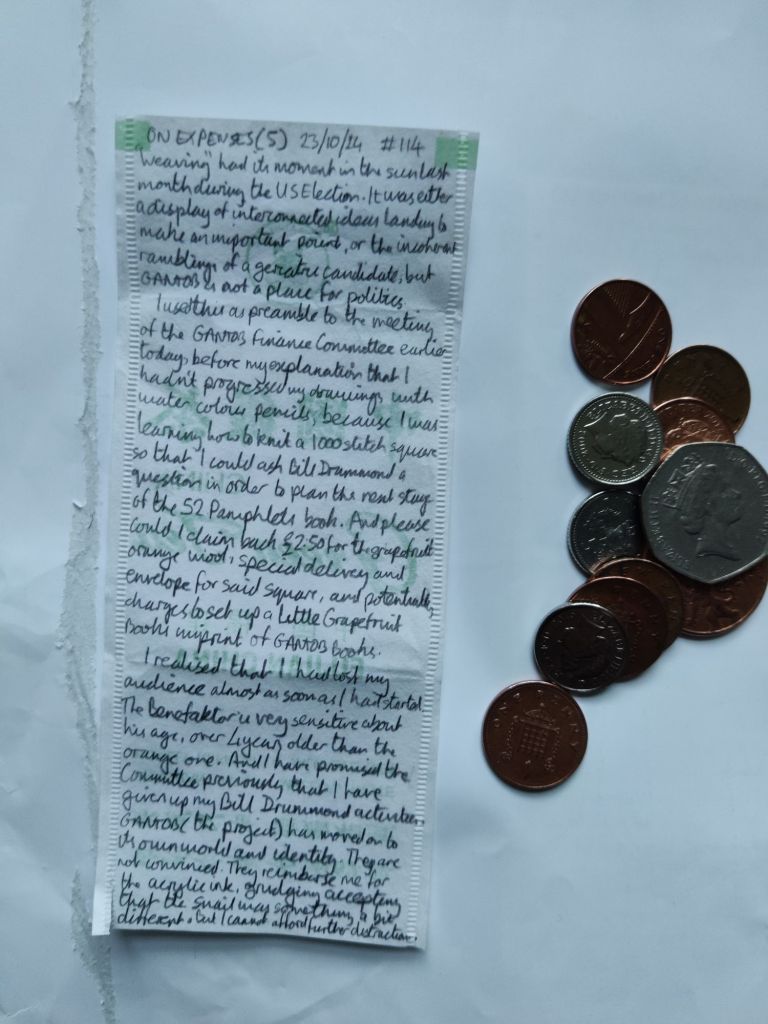 ON EXPENSES (5) 23/10/24 #114
"Weaving" had its moment in the sun last
month during the US Election. It was either
a display of interconnected ideas landing to
make an important point, or the incoherent
ramblings of a geriatric candidate, but
GANTOB is not a place for politics.
I used this as preamble to the meeting
of the GANTOB Finance Committee earlier
today, before my explanation that I
hadn't progressed my drawings with
water colour pencils, because I was
learning how to knit a 1000 stitch square
so that I could ask Bill Drummond a
question in order to plan the next stage
of the 52 Pamphlets book. And please
could I claim back £2.50 for the grapefruit
orange wool, special delivery and
envelope for said square, and potentially
charges to set up a Little Grapefruit
Books imprint of GANTOB books.
I realised that I had lost my
audience almost as soon as I had started.
The Benefaktor is very sensitive about
his age, over 4 years older than the
orange one. And I have promised the
Committee previously that I have
given up my Bill Drummond activities.
GANTOB (the project) has moved on to
its own world and identity. They are
not convinced. They reimburse me for
the acrylic ink, grudging accepting
that the snail was something a bit
different, but I cannot afford further distractions.
ONE PENNY